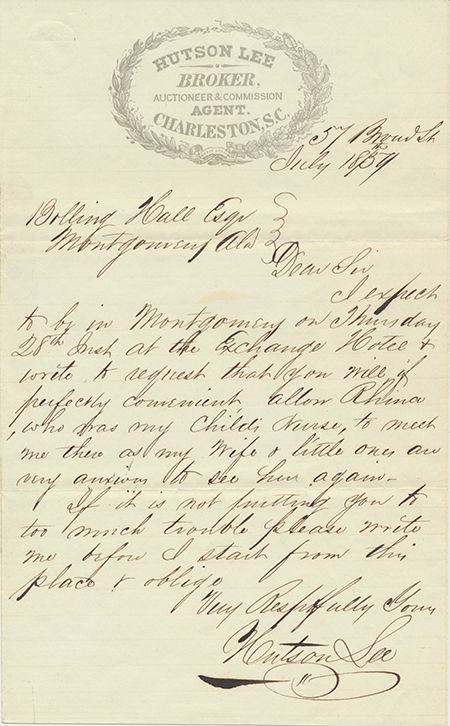 HUTSON LEE
BROKER,
AUCTIONEER & COMMISSION
AGENT.
CHARLESTON, S.C.
57 Broad St
July 18th 59
Bolling Hall Esqr
Montgomery Ala
Dear Sir
I expect
to be in Montgomery on Thursday
28th Inst at the Exchange Hotel &
write to request that you will if
perfectly convenient allow Rhina
, who was my Child's Nurse, to meet
me there as my Wife & little ones are
very anxious to see her again -
If it is not putting you to
too much trouble please write
me before I start from this
place & oblige
Very Respfully Yours
Hutson Lee